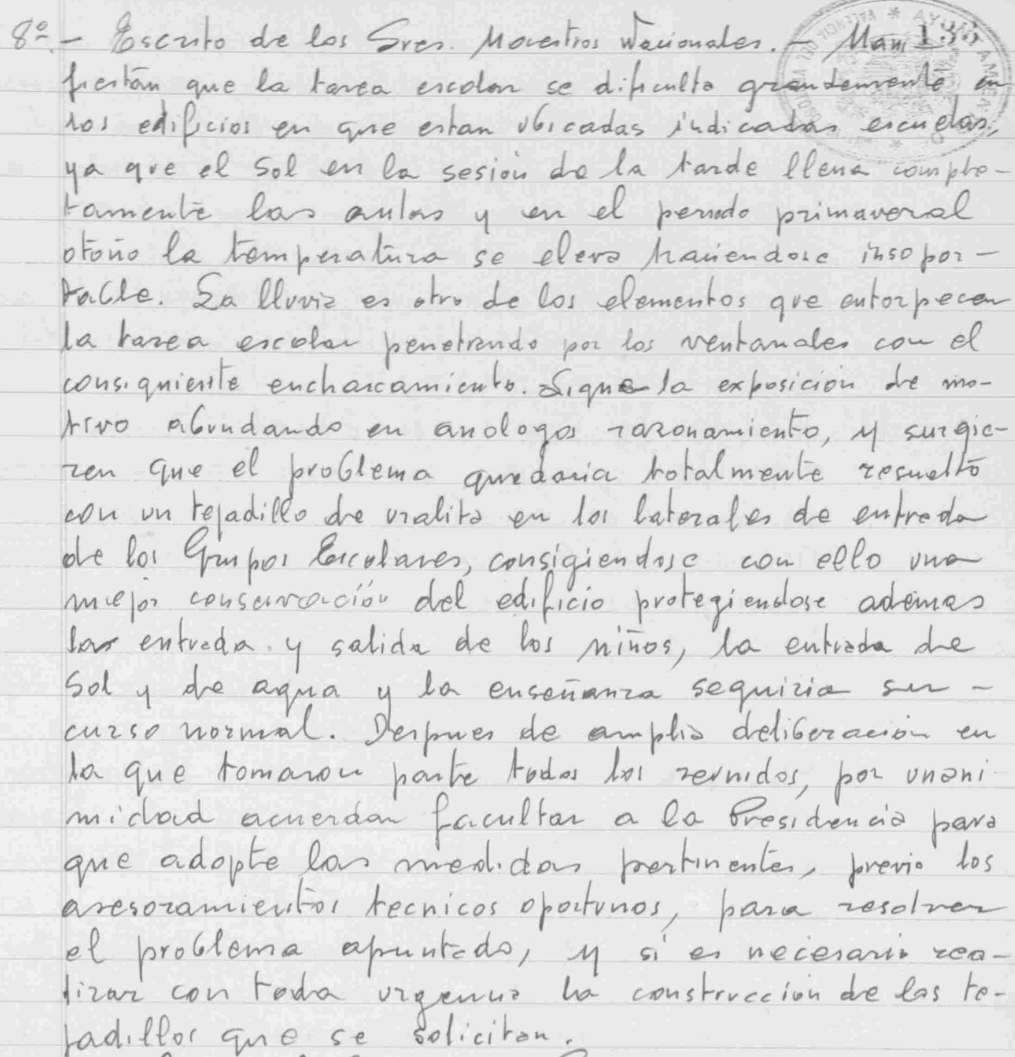 8º.- Escrito de los Sres. Maestros Nacionales.- Mani 135
fiestan que la tarea escolar se dificulta grandemente en
los edificios en que estan ubicadas indicadas escuelas,
ya que el Sol en la sesión de la tarde llena comple-
tamente las aulas y en el periodo primaveral
otoño la temperatura se eleva haciendose insopor-
table. La lluvia es otro de los elementos que entorpecen
la tarea escolar penetrando por los ventanales con el
consiguiente encharcamiento. Sigue la exposición de mo-
tivo abundando en analogos razonamiento, y surgie-
ren que el problema quedaria totalmente resuelto
con un tejadillo de uralita en los laterales de entrada
de los Grupos Escolares, consigiendose con ello una
mejor conservación del edificio protegiendose ademas
las entrada y salida de los niños, la entrada de
Sol y de agua y la enseñanza seguiria su -
curso normal. Despues de amplia deliberación en
la que tomaron parte todos los reunidos, por unani
midad acuerdan facultar a la Presidencia para
que adopte las medidas pertinentes, previo los
asesoramientos tecnicos oportunos, para resolver
el problema apuntado, y si es necesario rea-
lizar con toda urgencia la construccion de los te-
jadillos que se solicitan.